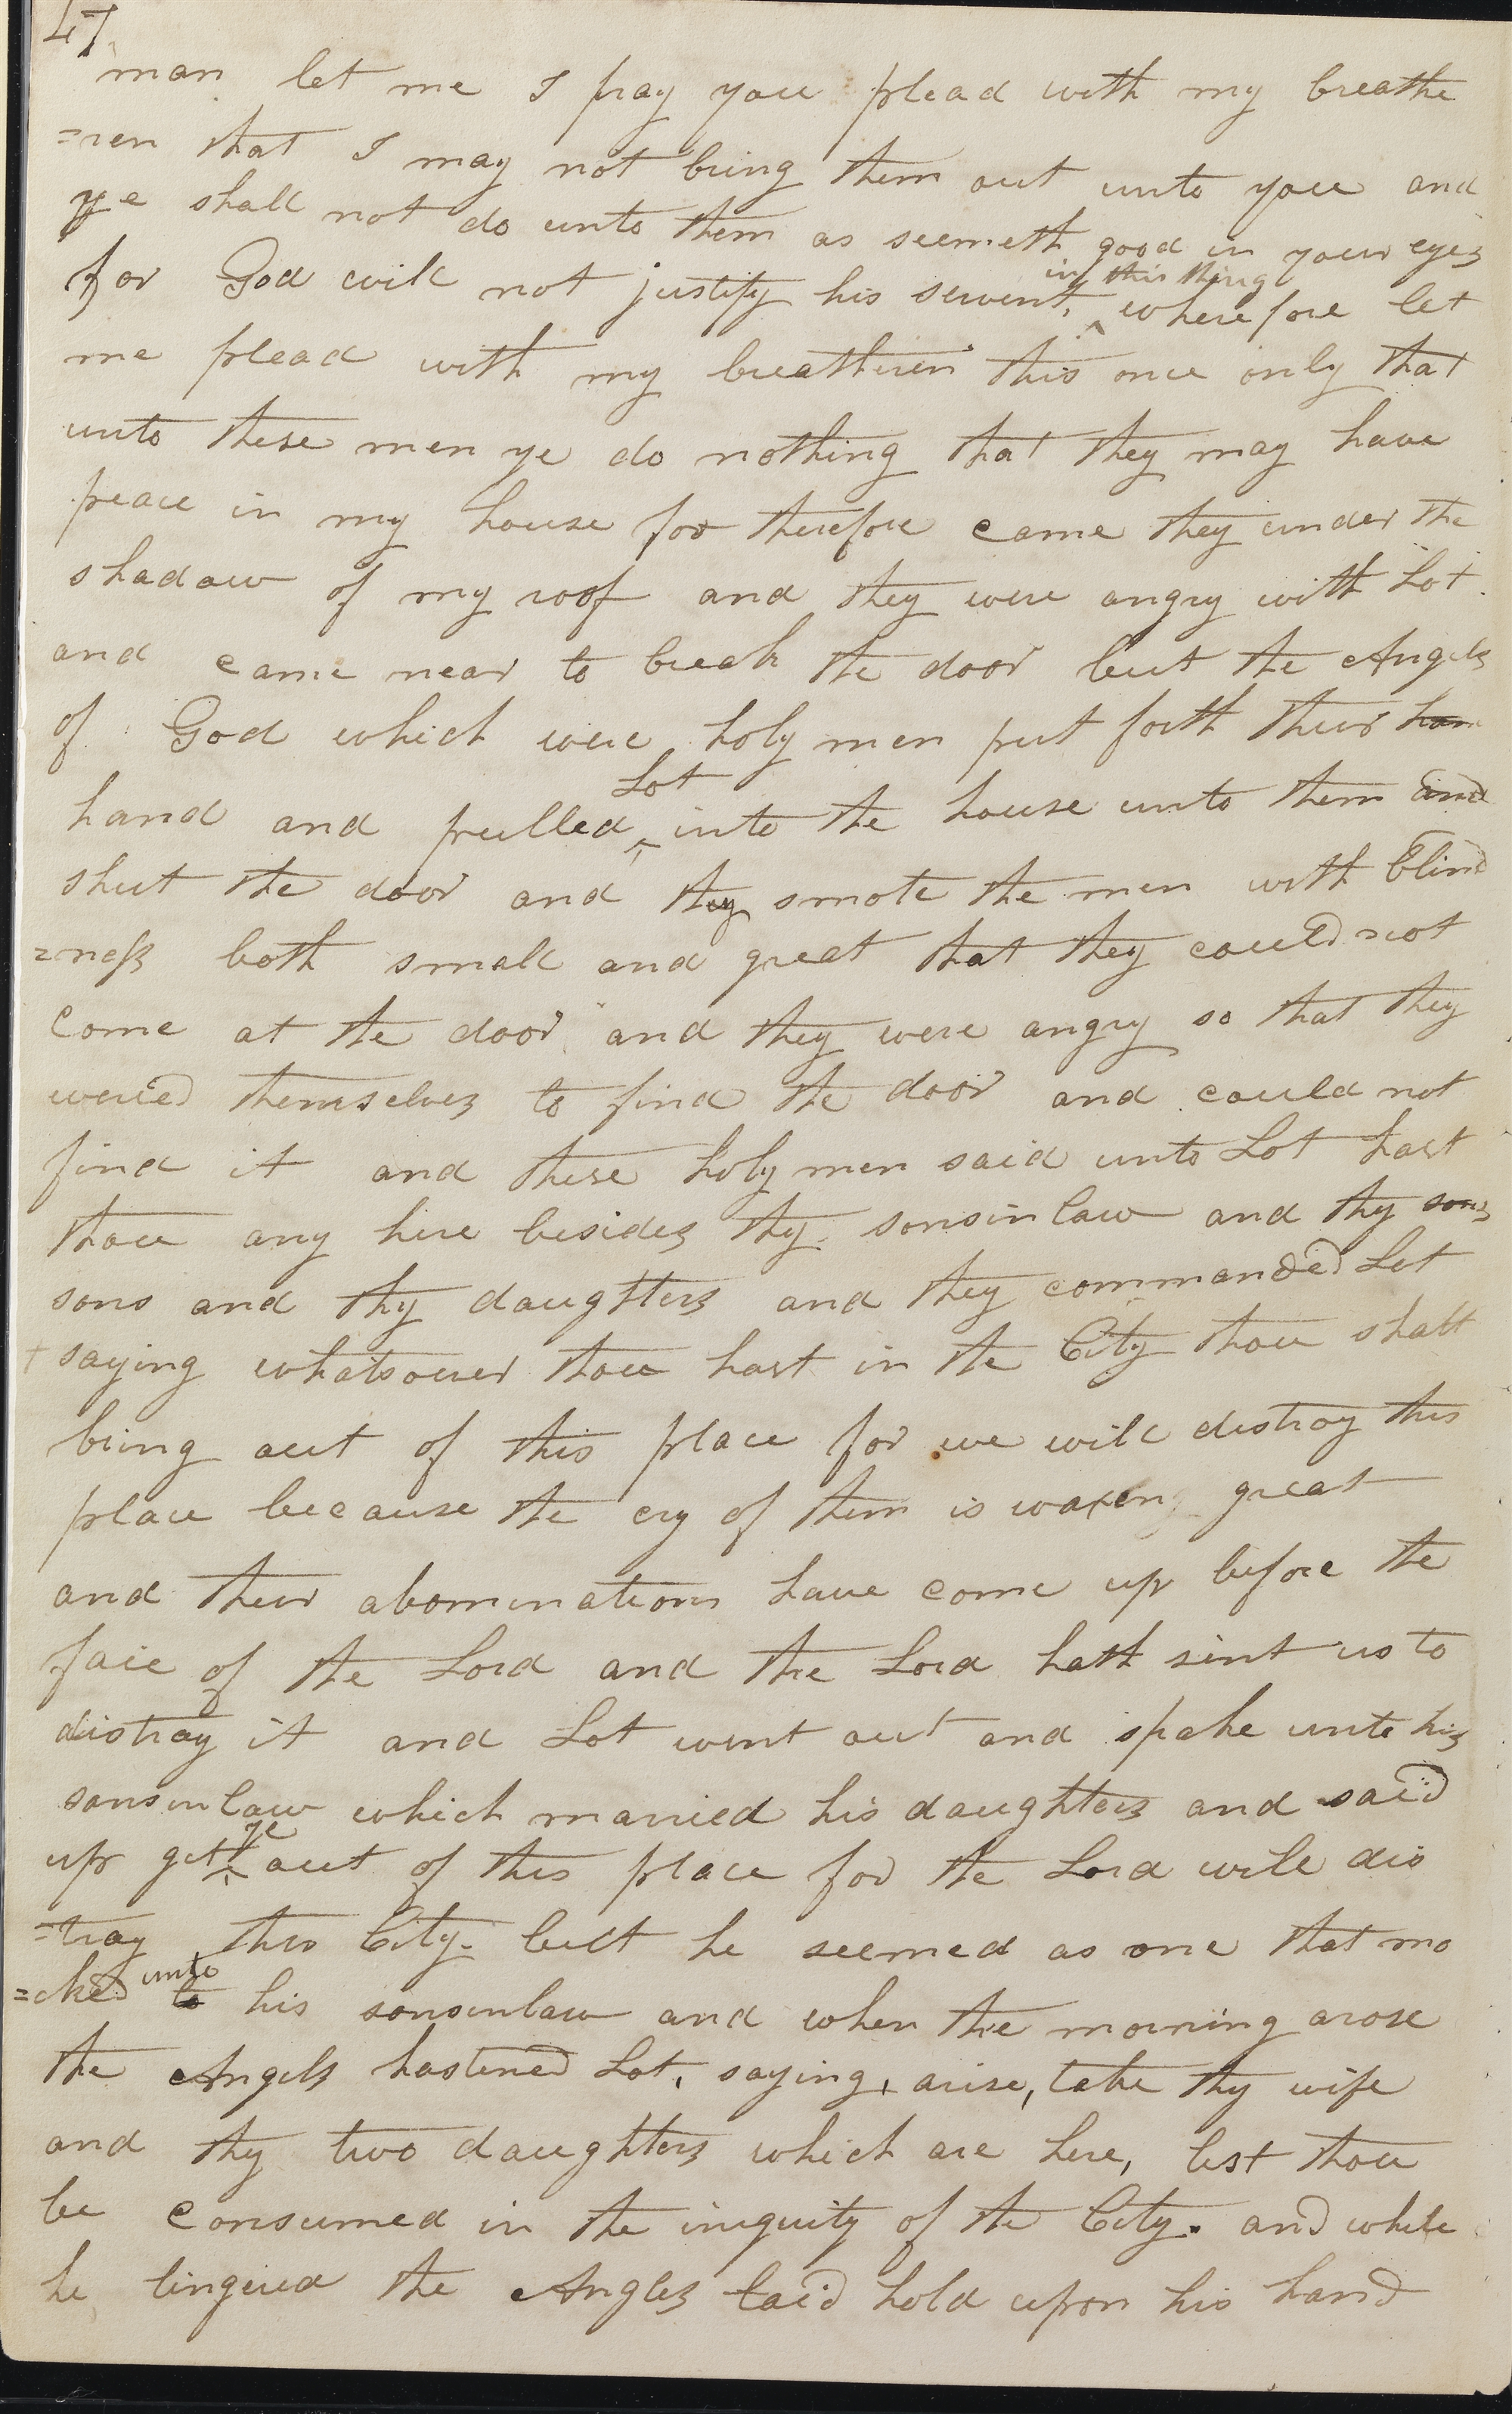 47
man let me I pray you plead with my breathe
=ren that I may not bring them out unto you and
ye shall not do unto them as seemeth good in your eyes
for God will not justify his servent, in this thing wherefore let
me plead with my breatheren this once only that
unto these men ye do nothing that they may have
peace in my house for therefore came they under the
shadow of my roof and they were angry with Lot
and came near to break the door but the Angels
of God which were holy men put forth their han
hand and pulled Lot into the house unto them and
shut the door and they smote the men with blind
=ness both small and great that they could not
come at the door and they were angry so that they
weried themselves to find the door and could not
find it and these holy men said unto Lot hast
thou any here besides thy sonsinlaw and thy sons
sons and thy daughters and they commanded Lot
+ saying whatsoever thou hast in the City thou shalt
bring out of this place for we will distroy this
place because the cry of them is waxen great
and their abominations have come up before the
face of the Lord and the Lord hath sent us to
distroy it and Lot went out and spake unto his
sonsinlaw which married his daughters and said
up get ye out of this place for the Lord will dis
=troy this City. but he seemed as one that mo
=cked unto to his sonsinlaw and when the morning arose
the Angels hastened Lot, saying, arise, take thy wife
and thy two daughters which are here, lest thou
be consumed in the iniquity of the City. and while
he lingered the Angles laid hold upon his hand